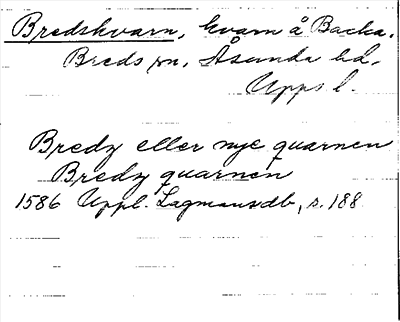 Bredskvarn, kvarn å Backa.
Breds sn, Åsunda hd,
Upps l.
Bredz eller nye quarnen
Bredz quarnen
1586 Uppl. Lagmansdb, s. 188